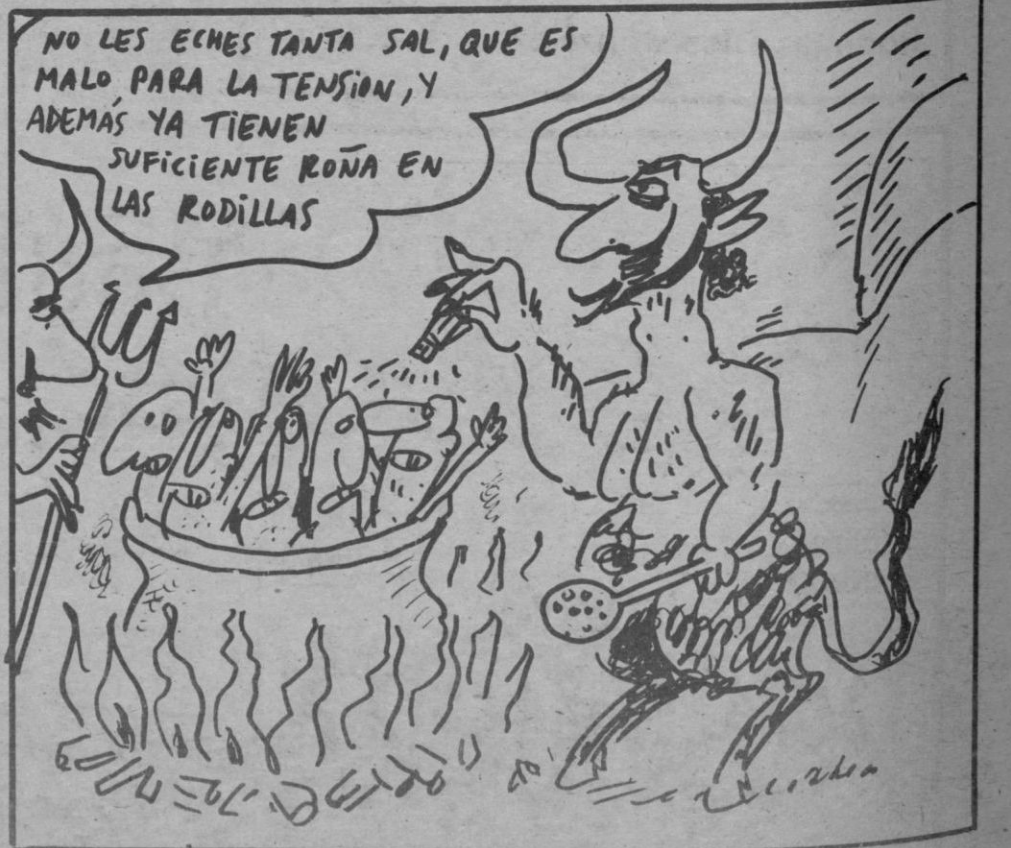 NO LES ECHES TANTA SAL, QUE ES
MALO PARA LA TENSION, Y
ADEMÁS YA TIENEN
SUFICIENTE ROÑA EN
LAS RODILLAS